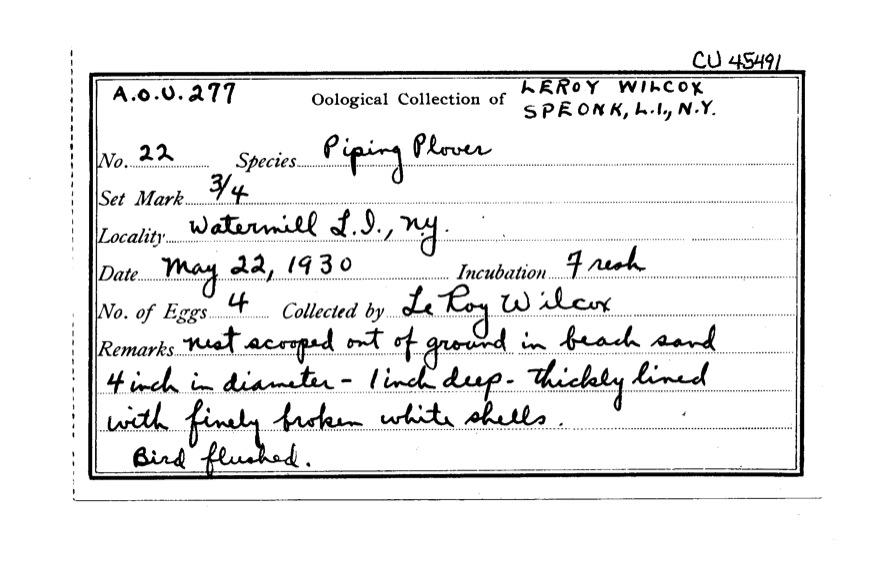 CU 45491
A.O.U. 277 Oological Collection of LEROY WILCOX
SPEONK, L.I., N.Y.
No. 22 Species Piping Plover
Set Mark 3/4
Locality Watermill L.I., N.Y.
Date May 22, 1930 Incubation Fresh
No. of Eggs 4 Collected by LeRoy Wilcox
Remarks nest scooped out of ground in beach sand
4 inch in diameter - 1 inch deep - thickly lined
with finely broken white shells.
Bird flushed.